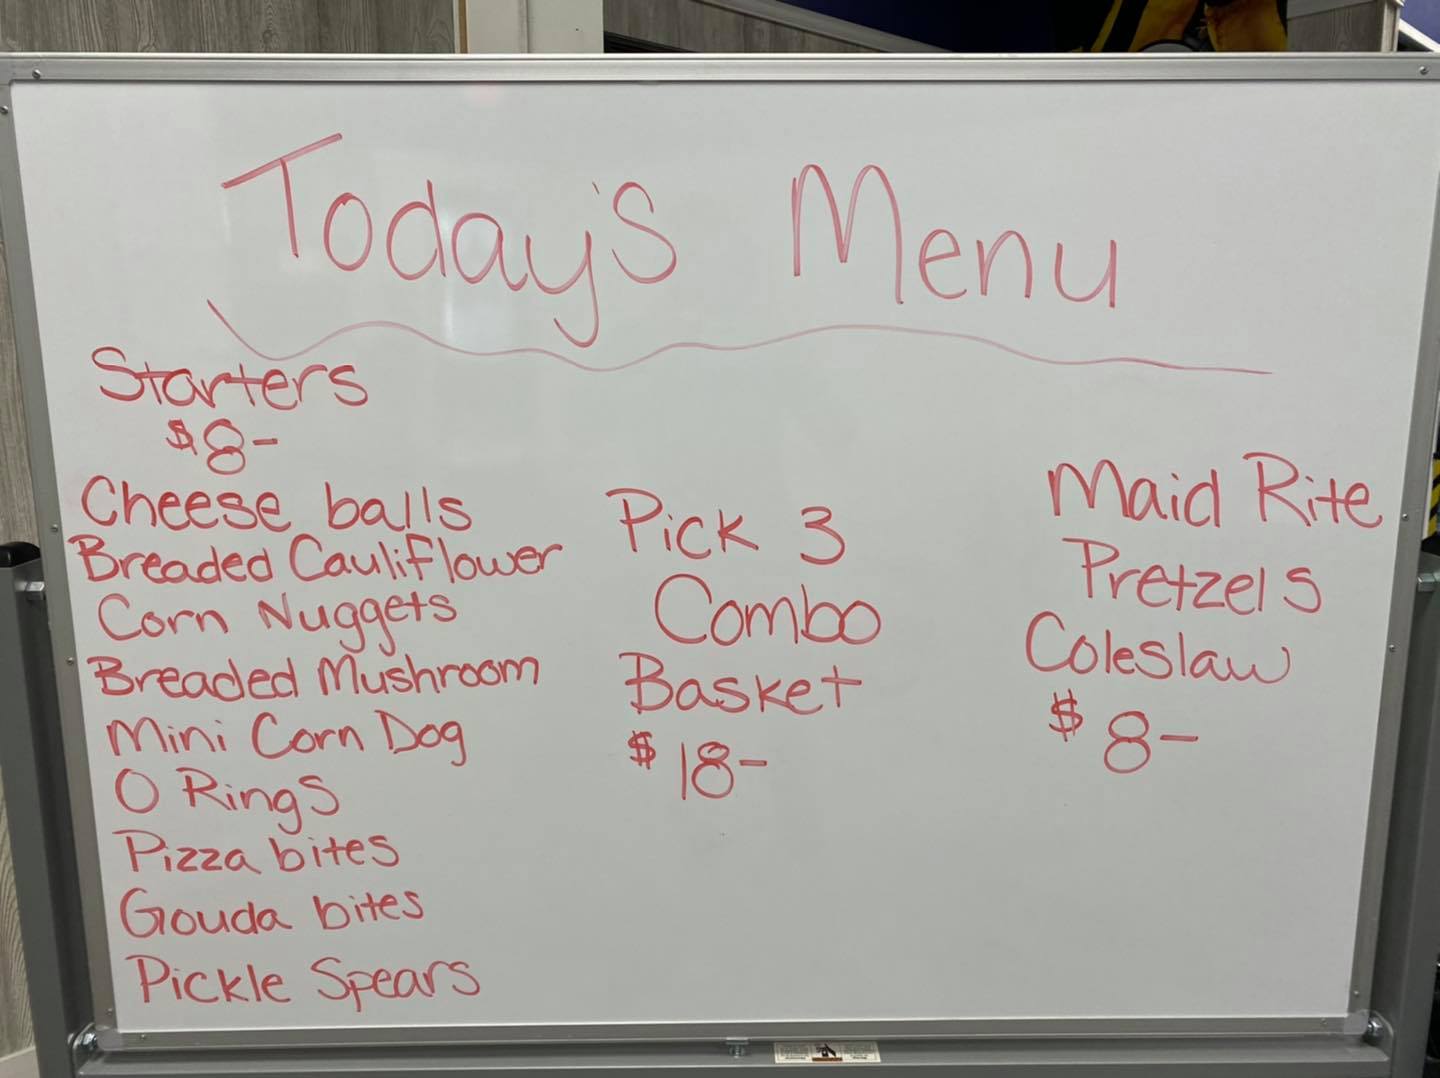 Today's Menu
Starters
$8-
Cheese balls
Breaded Cauliflower
Corn Nuggets
Breaded Mushroom
Mini Corn Dog
O Rings
Pizza bites
Gouda bites
Pickle Spears
Pick 3
Combo
Basket
$18-
Maid Rite
Pretzels
Coleslaw
$8-